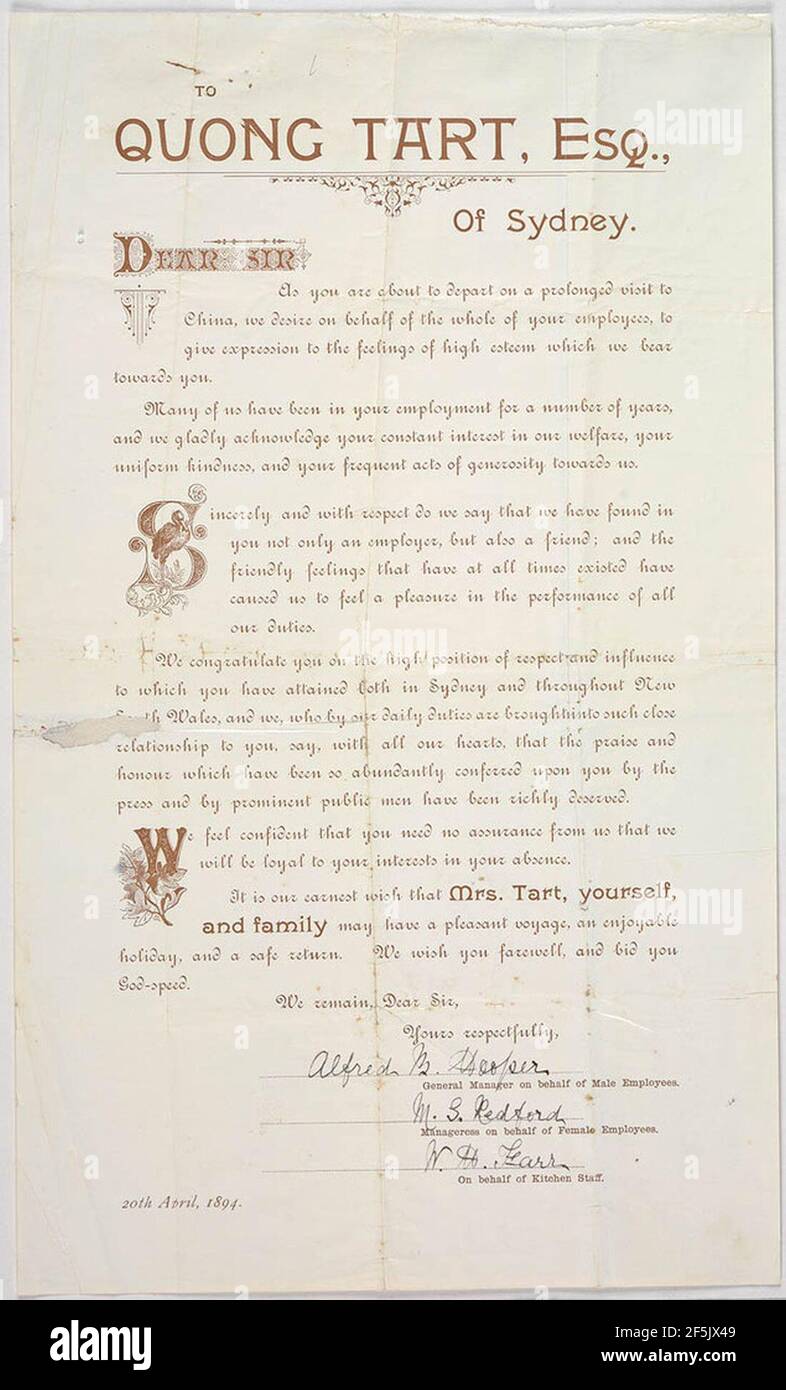 TO
QUONG TART, ESQ.,
Of Sydney.
DEAR SIR
As you are about to depart on a prolonged visit to
China, we desire on behalf of the whole of your employees, to
give expression to the feelings of high esteem which we bear
towards you.
Many of us have been in your employment for a number of years,
and we gladly acknowledge your constant interest in our welfare, your
uniform kindness, and your frequent acts of generosity towards us.
Sincerely and with respect do we say that we have found in
you not only an employer, but also a friend; and the
friendly feelings that have at all times existed have
caused us to feel a pleasure in the performance of all
our duties.
We congratulate you on the high position of respect and influence
to which you have attained both in Sydney and throughout New
South Wales, and we, who by our daily duties are brought into such close
relationship to you, say, with all our hearts, that the praise and
honour which have been so abundantly conferred upon you by the
press and by prominent public men have been richly deserved.
We feel confident that you need no assurance from us that we
will be loyal to your interests in your absence.
It is our earnest wish that Mrs. Tart, yourself,
and family may have a pleasant voyage, an enjoyable
holiday, and a safe return. We wish you farewell, and bid you
God-speed.
We remain, Dear Sir,
Yours respectfully,
Alfred B. Hooper
General Manager on behalf of Male Employees.
M. G. Redford
Manageress on behalf of Female Employees.
W. H. Farr
On behalf of Kitchen Staff.
20th April, 1894.
a alamy
alamy
alamy
alamy
Image ID: 2F5JX49
www.alamy.com